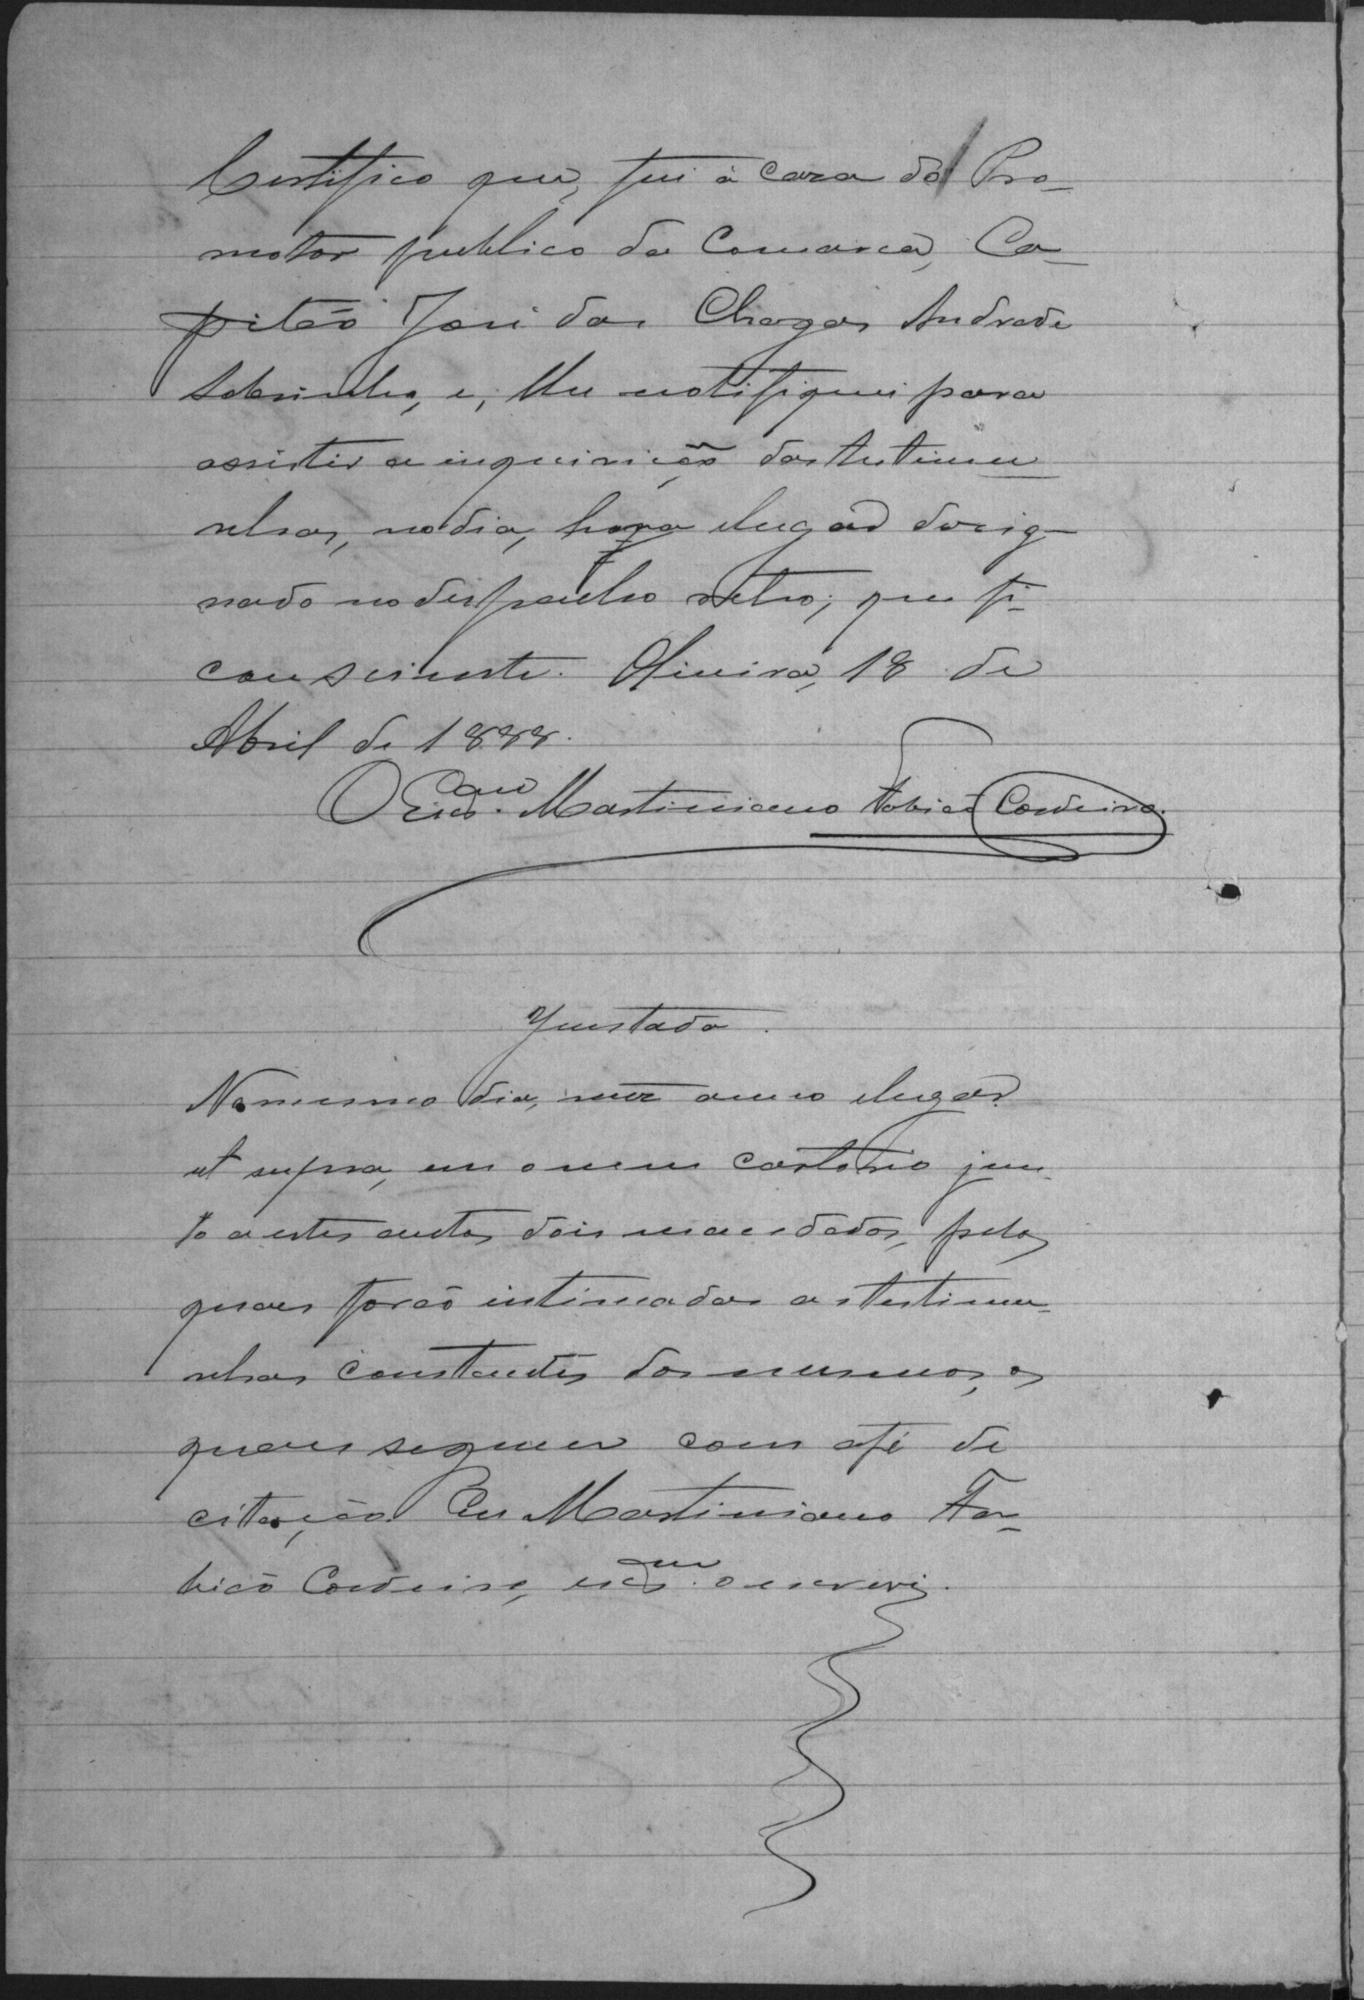 Certifico que, fui à caza do Pro-
motor publico da Comarca, Ca-
pitão José das Chagas Andrade
Sobrinho, e, lhe notifiquei para
assistir a inquirição das testimu
nhas, no dia, hora elugar dezig-
nado no despacho retro; que fi-
cou sciente. Oliveira, 18 de
Abril de 1888.
O Escam. Martiniano Fabião Cordeiro.
Juntada.
No mesmo dia, mez anno elugar
ut supra, em o meu cartorio jun-
to a estes autos dois mandados, pelos
quaes forão intimadas as testimu-
nhas constantes dos mesmos, os
quaes seguem com afé de
citação. Eu Martiniano Fa-
bião Cordeiro, escam. o escrevi.